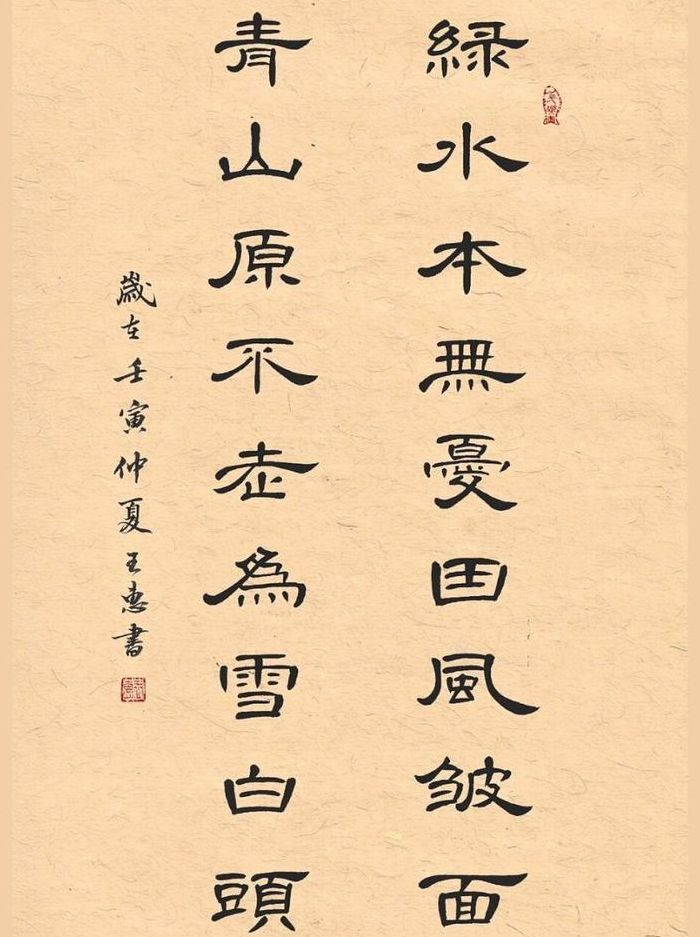 緑水本無憂因風皱面
青山原不老為雪白頭
歲在壬寅仲夏王惠書